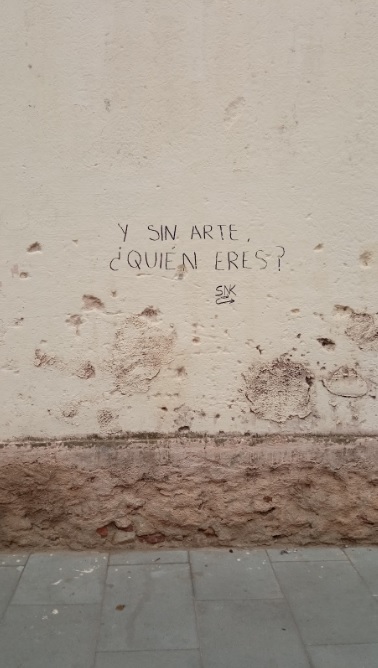 Y SIN ARTE,
¿QUIÉN ERES?
SNK